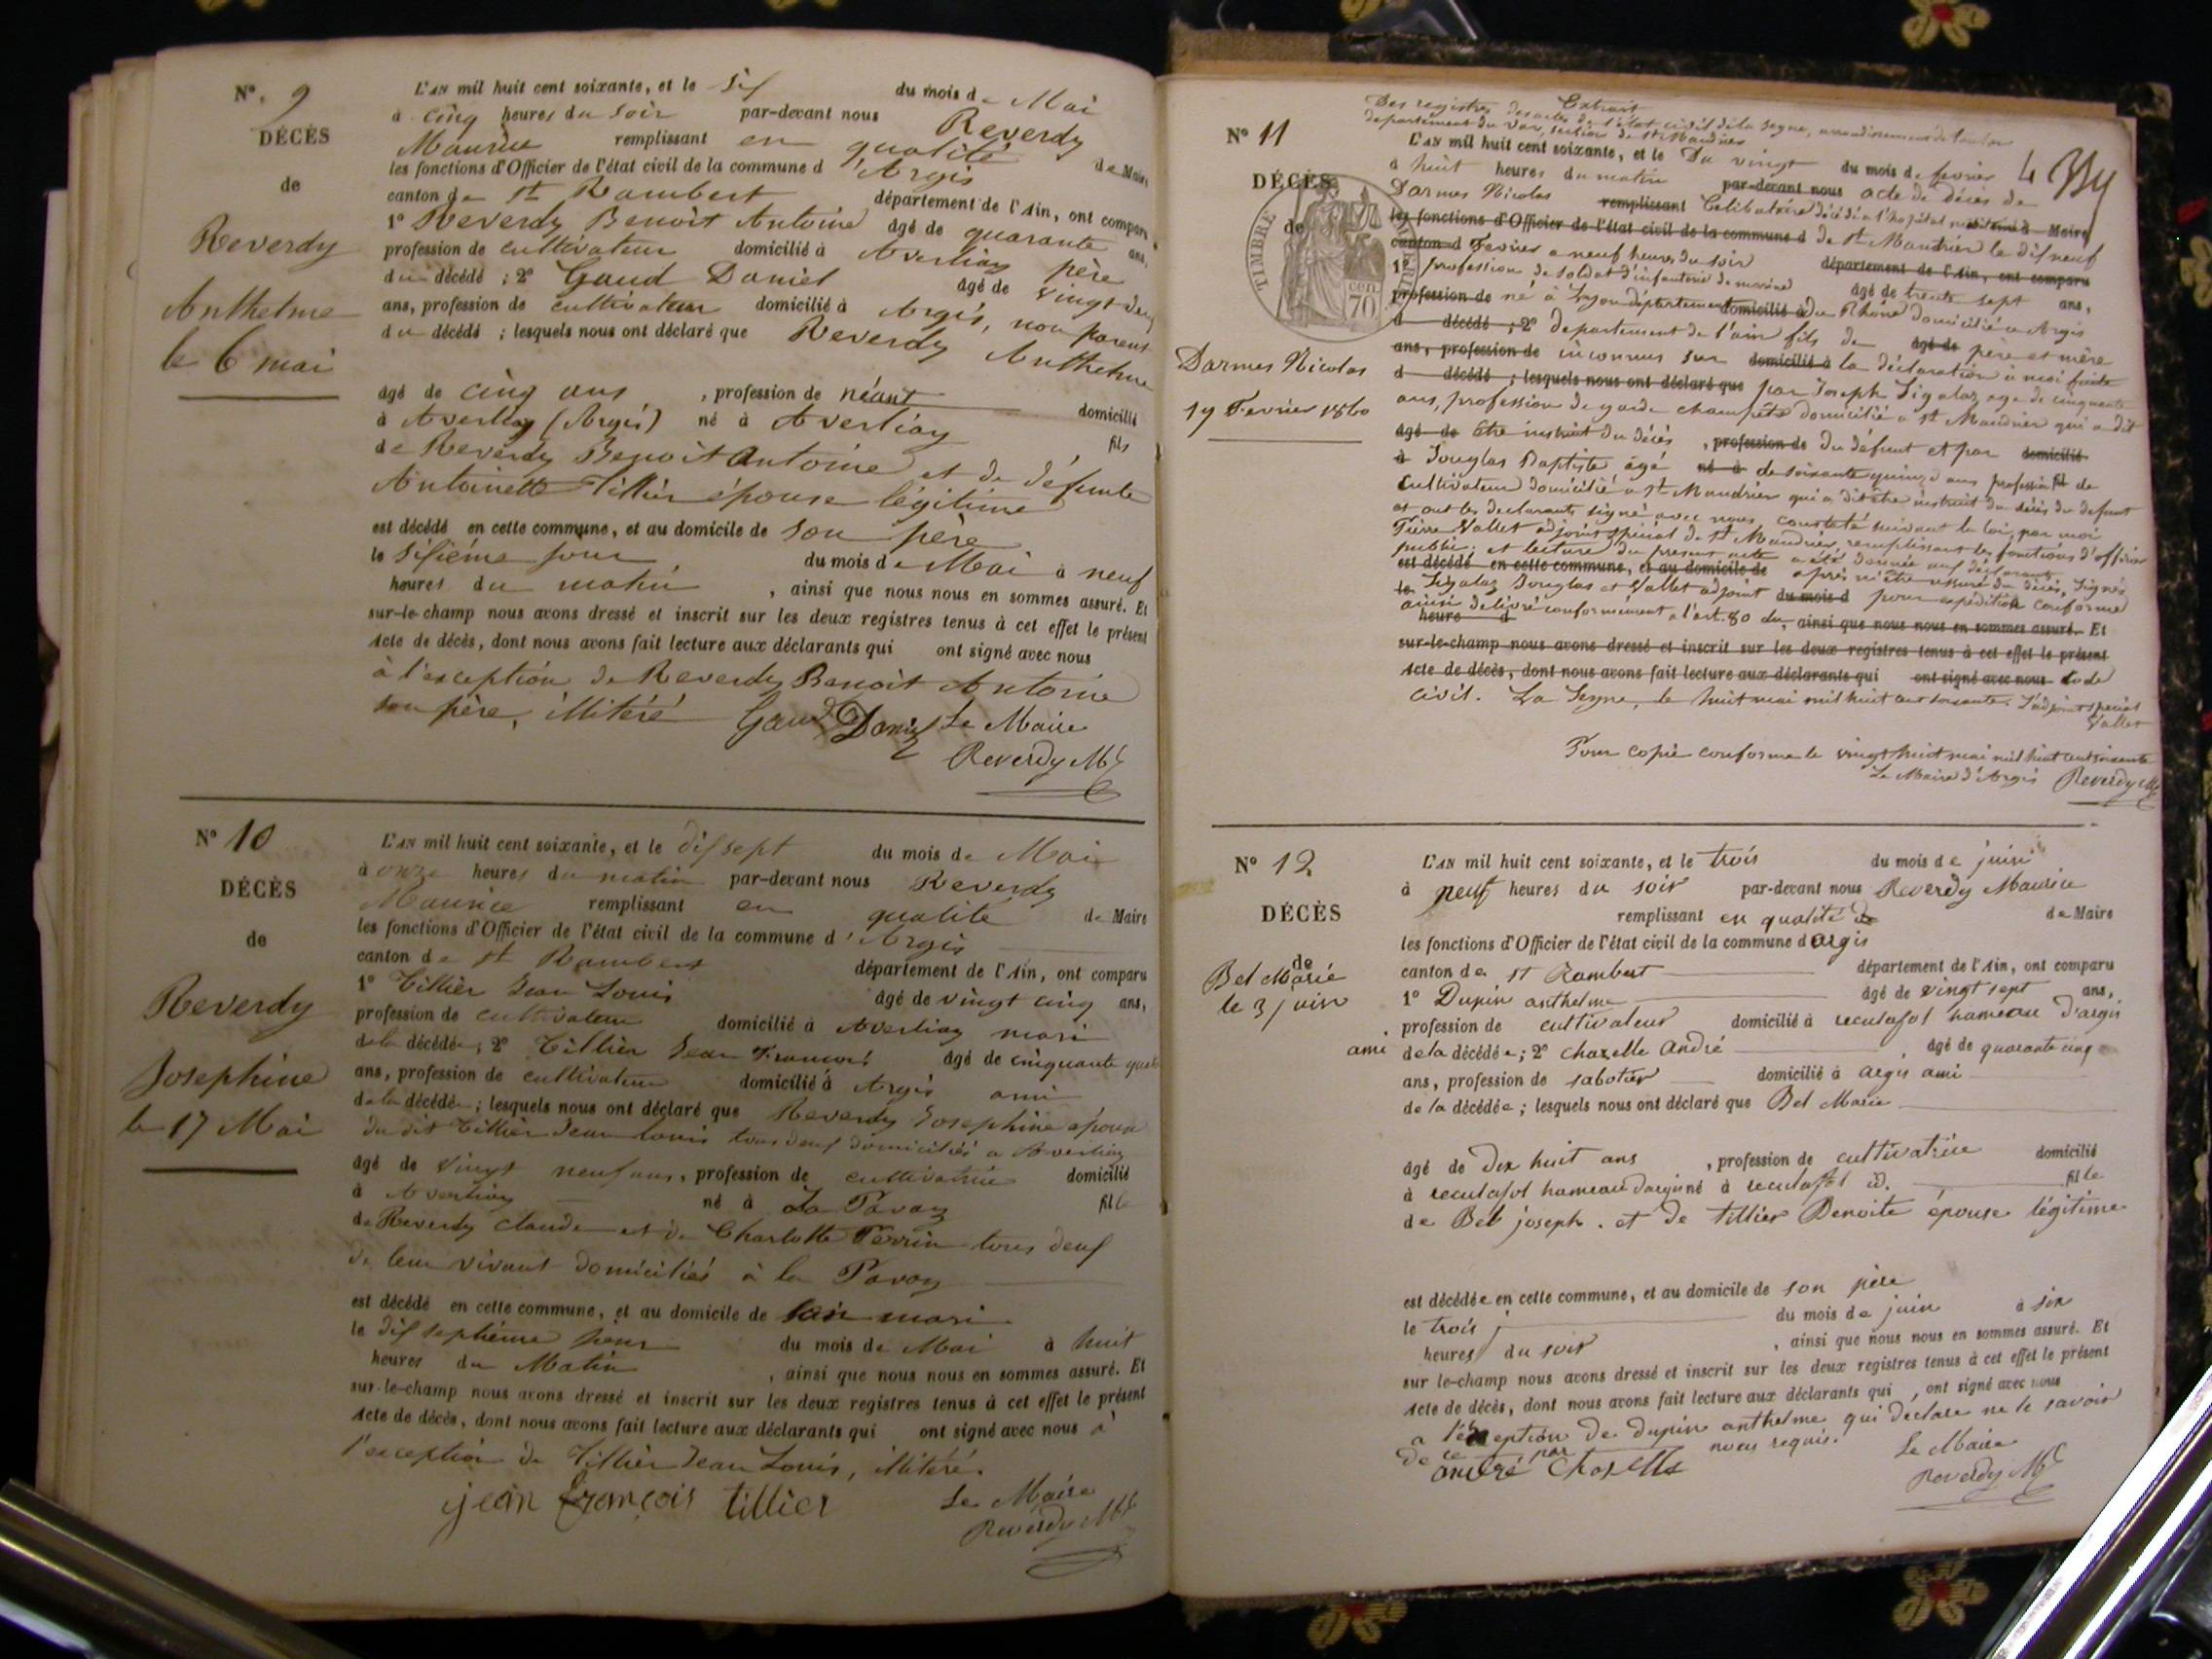 N°. 9
DÉCÈS
de
Reverdy
Anthelme
le 6 mai
L'AN mil huit cent soixante, et le six du mois de Mai
à cinq heures du soir par-devant nous Reverdy
Maurice remplissant en qualité de Maire
les fonctions d'Officier de l'état civil de la commune d'Argis
canton de St Rambert département de l'Ain, ont comparu
1° Reverdy Benoit Antoine âgé de quarante ans,
profession de cultivateur domicilié à Averliaz père
du décédé ; 2° Gaud Daniel âgé de vingt deux
ans, profession de cultivateur domicilié à Argis, non parent
du décédé ; lesquels nous ont déclaré que Reverdy Anthelme
âgé de cinq ans , profession de néant domicilié
à Averliaz (Argis) né à Averliaz fils
de Reverdy Benoit Antoine et de défunte
Antoinette Tillier épouse légitime
est décédé en cette commune, et au domicile de son père
le sixième jour du mois de Mai à neuf
heures du matin , ainsi que nous nous en sommes assuré. Et
sur-le-champ nous avons dressé et inscrit sur les deux registres tenus à cet effet le présent
Acte de décès, dont nous avons fait lecture aux déclarants qui ont signé avec nous
à l'exception de Reverdy Benoit Antoine
son père, illitéré Gaud Daniel Le Maire
Reverdy Mce
N° 10
DÉCÈS
de
Reverdy
Josephine
le 17 Mai
L'AN mil huit cent soixante, et le dix sept du mois de Mai
à onze heures du matin par-devant nous Reverdy
Maurice remplissant en qualité de Maire
les fonctions d'Officier de l'état civil de la commune d'Argis
canton de St Rambert département de l'Ain, ont comparu
1° Tillier Jean Louis âgé de vingt cinq ans,
profession de cultivateur domicilié à Averliaz mari
de la décédée ; 2° Tillier Jean François âgé de cinquante quatre
ans, profession de cultivateur domicilié à Argis ami
de la décédée ; lesquels nous ont déclaré que Reverdy Josephine épouse
du dit Tillier Jean Louis tous deux domiciliés a Averliaz
âgé de vingt neuf ans, profession de cultivatrice domicilié
à Averliaz né à La Pavaz fille
de Reverdy Claude et de Charlotte Perrin tous deux
de leur vivant domiciliés à la Pavaz
est décédé en cette commune, et au domicile de son mari
le dix septième jour du mois de Mai à huit
heures du Matin , ainsi que nous nous en sommes assuré. Et
sur-le-champ nous avons dressé et inscrit sur les deux registres tenus à cet effet le présent
Acte de décès, dont nous avons fait lecture aux déclarants qui ont signé avec nous à
l'exception de Tillier Jean Louis, illitéré.
jean françois tillier Le Maire
Reverdy Mce
N° 11
DÉCÈS
de
TIMBRE
cen.
70
Darmes Nicolas
19 Fevrier 1860
Extrait
Des registres des actes de l'état civil de la Segne, arrondissement de toulon
departement du Var, section de St Mandrier
L'AN mil huit cent soixante, et le Du vingt du mois de fevrier
à huit heures du matin par-devant nous acte de décès de
Darmes Nicolas remplissant Celibataire décédé a l'hopital
les fonctions d'Officier de l'état civil de la commune d de St Mandrier le dix neuf
canton d Fevrier a neuf heures du soir département de l'Ain, ont comparu
1° profession de soldat d'infanterie de marine âgé de trente sept ans,
profession de né à Lyon département domicilié à du Rhône domicilié a Argis
d décédé ; 2° departement de l'ain fils de âgé de père et mère
ans, profession de inconnus sur domicilié à la déclaration à moi faite
d décédé ; lesquels nous ont déclaré que par Joseph Sigalaz age de cinquante
ans, profession de garde champêtre domicilié a St Mandrier qui a dit
âgé de être instruit du décès , profession de du défunt et par domicilié
à Jouglas Baptiste âgé né à de soixante quinze ans profession fil de
cultivateur domicilié a St Mandrier qui a dit être instruit du décès du defunt
et ont les declarants signé avec nous, constaté suivant la loi, par moi
Pierre Vallet adjoint spécial de St Mandrier, remplissant les fonctions d'officier
public, et lecture du present acte a été donnée aux déclarants
est décédé en cette commune, et au domicile de après m'être assuré du décès, Signés
le Sigalaz Jouglas et Vallet adjoint du mois d pour expédition conforme
ainsi delivré conformement a l'art. 80 du , ainsi que nous nous en sommes assuré. Et
heure d
sur-le-champ nous avons dressé et inscrit sur les deux registres tenus à cet effet le présent
Acte de décès, dont nous avons fait lecture aux déclarants qui ont signé avec nous code
civil. La Segne, le huit mai mil huit cent soixante. l'adjoint special
Vallet
Pour copie conforme le vingt huit mai mil huit cent soixante
Le Maire d'Argis Reverdy Mce
N° 12
DÉCÈS
de
Bel Marie
le 3 juin
L'AN mil huit cent soixante, et le trois du mois de juin
à neuf heures du soir par-devant nous Reverdy Maurice
remplissant en qualité de de Maire
les fonctions d'Officier de l'état civil de la commune d argis
canton de St Rambert département de l'Ain, ont comparu
1° Dupin anthelme âgé de vingt sept ans,
profession de cultivateur domicilié à reculafol hameau d'argis
ami de la décédée ; 2° chazelle André , âgé de quarante cinq
ans, profession de sabotier domicilié à argis ami
de la décédée ; lesquels nous ont déclaré que Bel Marie
âgé de dix huit ans , profession de cultivatrice domicilié
à reculafol hameau d'argis né à reculafol id. fille
de Bel joseph. et de tillier Benoite épouse légitime
est décédée en cette commune, et au domicile de son père
le trois du mois de juin à six
heures du soir , ainsi que nous nous en sommes assuré. Et
sur le-champ nous avons dressé et inscrit sur les deux registres tenus à cet effet le présent
Acte de décès, dont nous avons fait lecture aux déclarants qui , ont signé avec nous
a l'exception de dupin anthelme qui déclare ne le savoir
de ce par nous requis. Le Maire
andré Chazelle Reverdy Mce